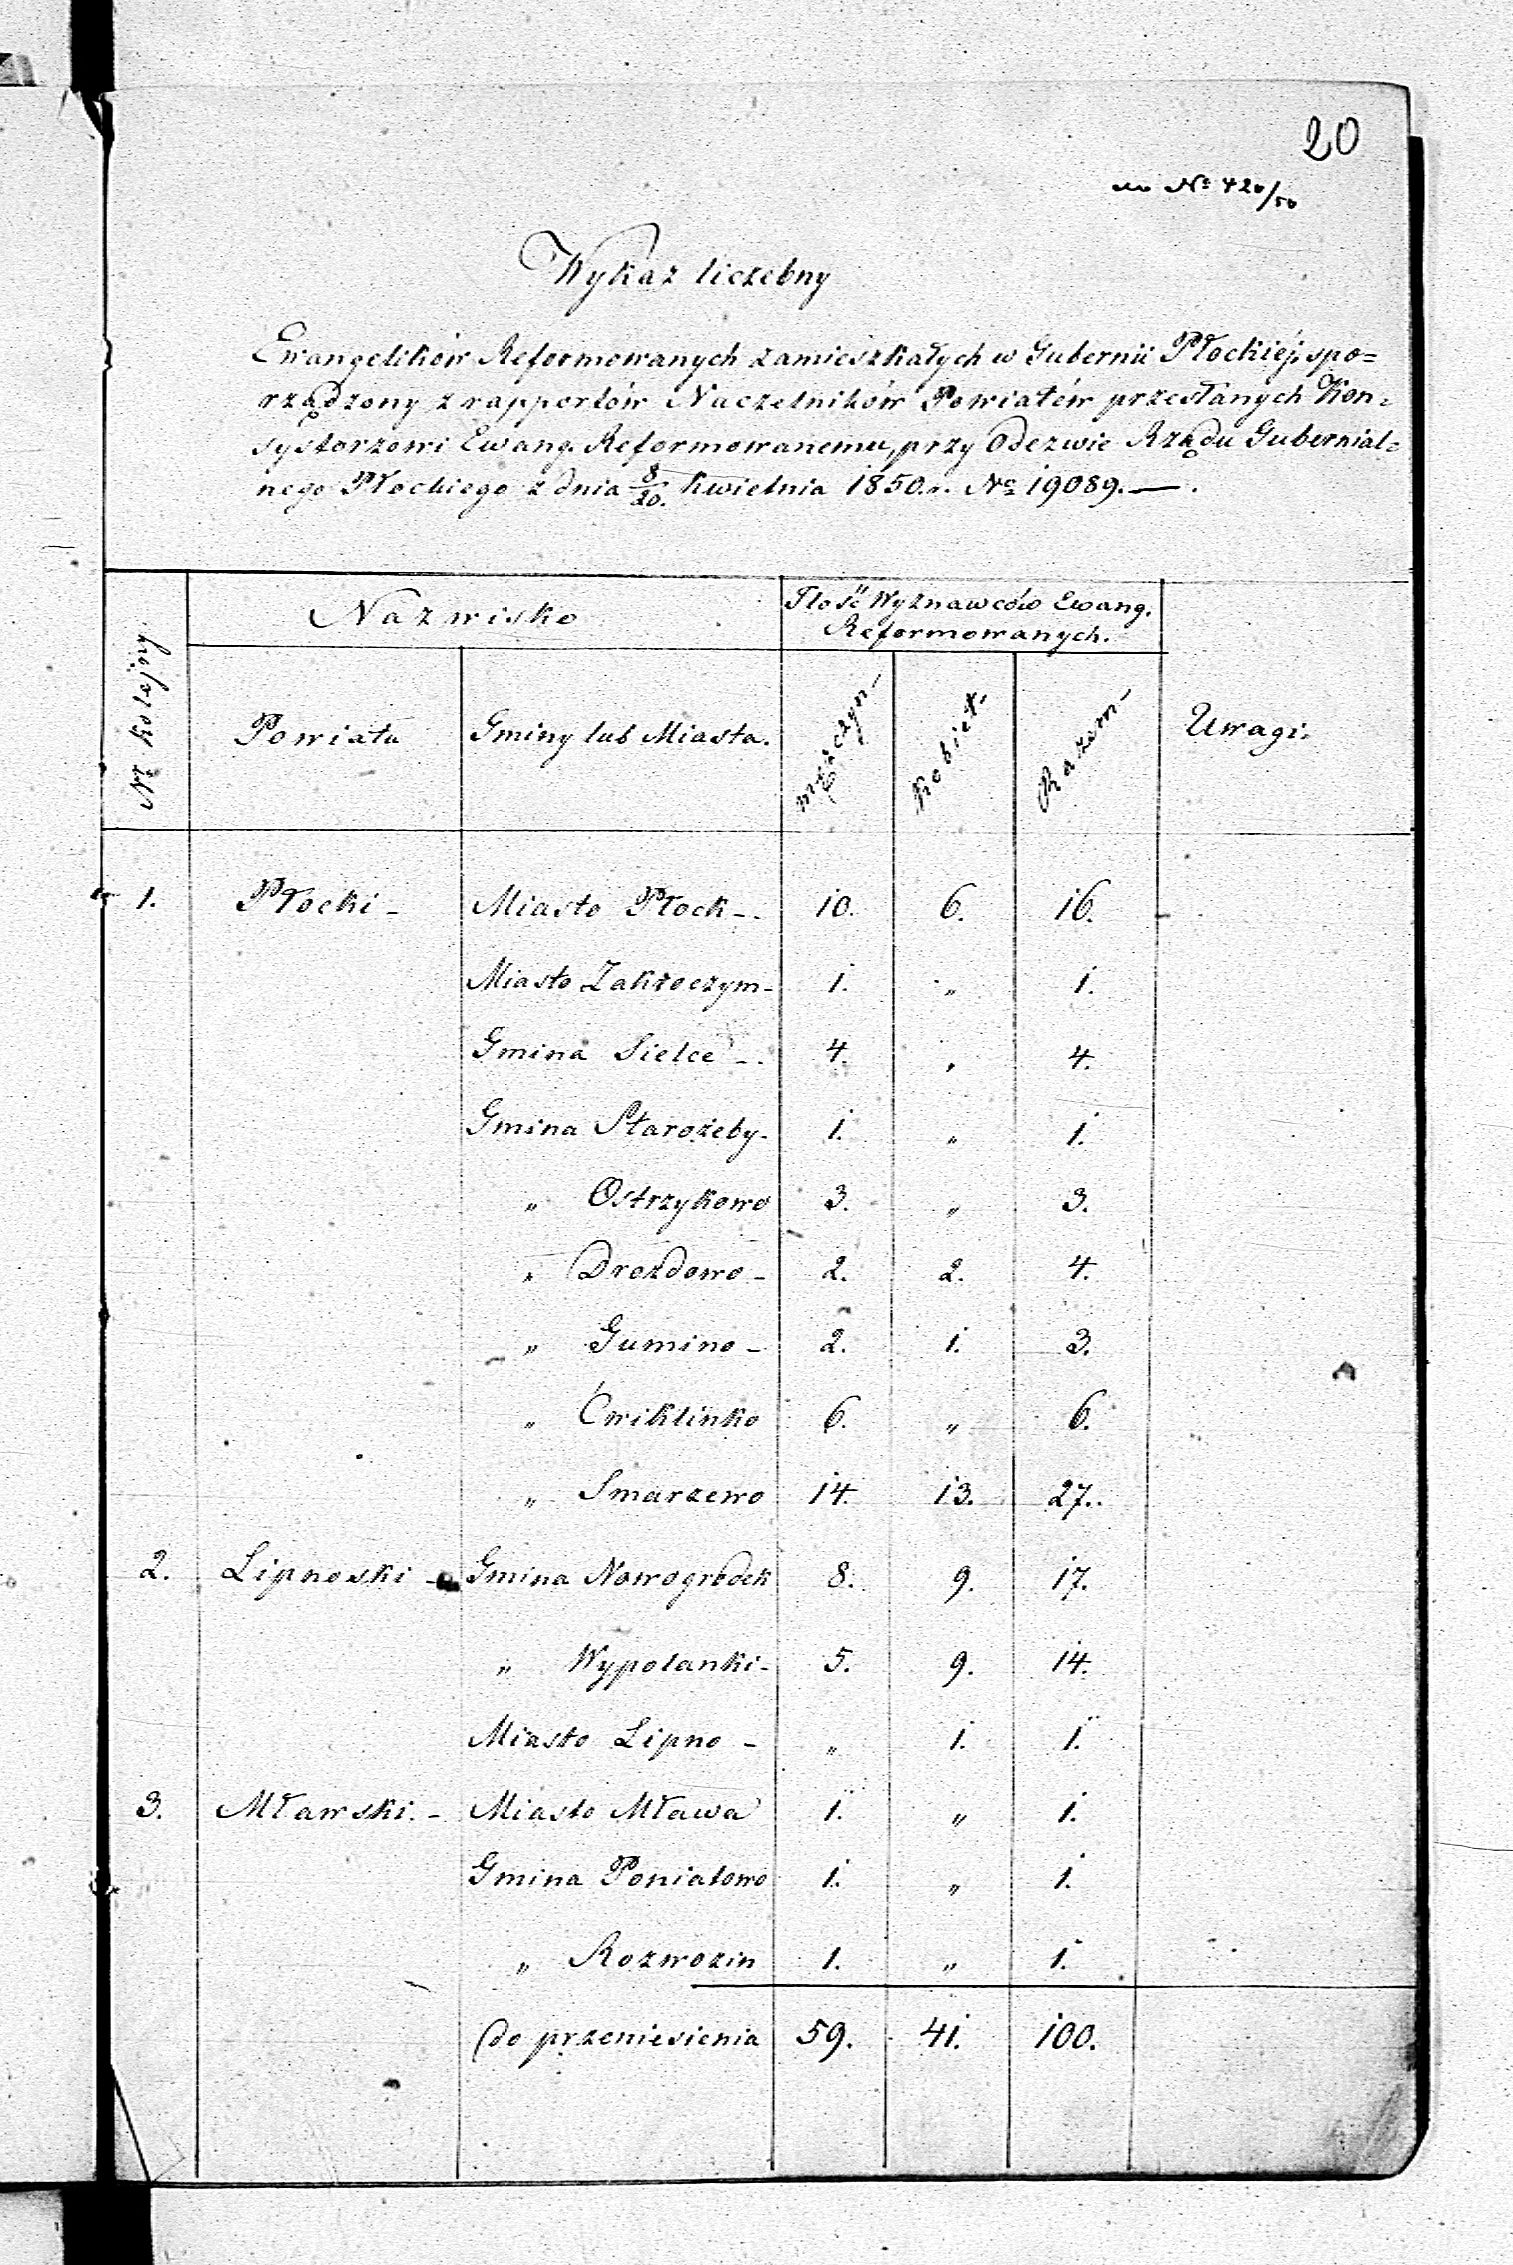 20
ad Nº 420/50
Wykaz liczebny
Ewangelików Reformowanych zamieszkałych w Gubernii Płockiéj, spo=
rządzony z rapportów Naczelników Powiatów przesłanych Kon=
systorzowi Ewang. Reformowanemu, przy Odezwie Rządu Gubernial=
nego Płockiego z dnia 8/20. Kwietnia 1850.r. No 19089.—.
Nr Kolejny.
Nazwisko
Ilość Wyznawców Ewang.
Reformowanych.
Powiatu
Gminy lub Miasta.
mężczyzn
Kobiet.
Razem
Uwagi.
1. Płocki - Miasto Płock -. 10. 6. 16.
Miasto Zakroczym - 1. „ 1.
Gmina Sielce -. 4. „ 4.
Gmina Staroźeby - 1. „ 1.
„ Ostrzykowo 3. „ 3.
„ Drozdowo - 2. 2. 4.
„ Gumino - 2. 1. 3.
„ Ćwiklinko 6. „ 6.
„ Smarzewo 14. 13. 27.
2. Lipnoski - Gmina Nowogródek 8. 9. 17.
„ Wypolanki - 5. 9. 14.
Miasto Lipno - „ 1. 1.
3. Mławski. - Miasto Mława 1. „ 1.
Gmina Poniatowo 1. „ 1.
„ Rozwozin 1. „ 1.
do przeniesienia 59. 41. 100.